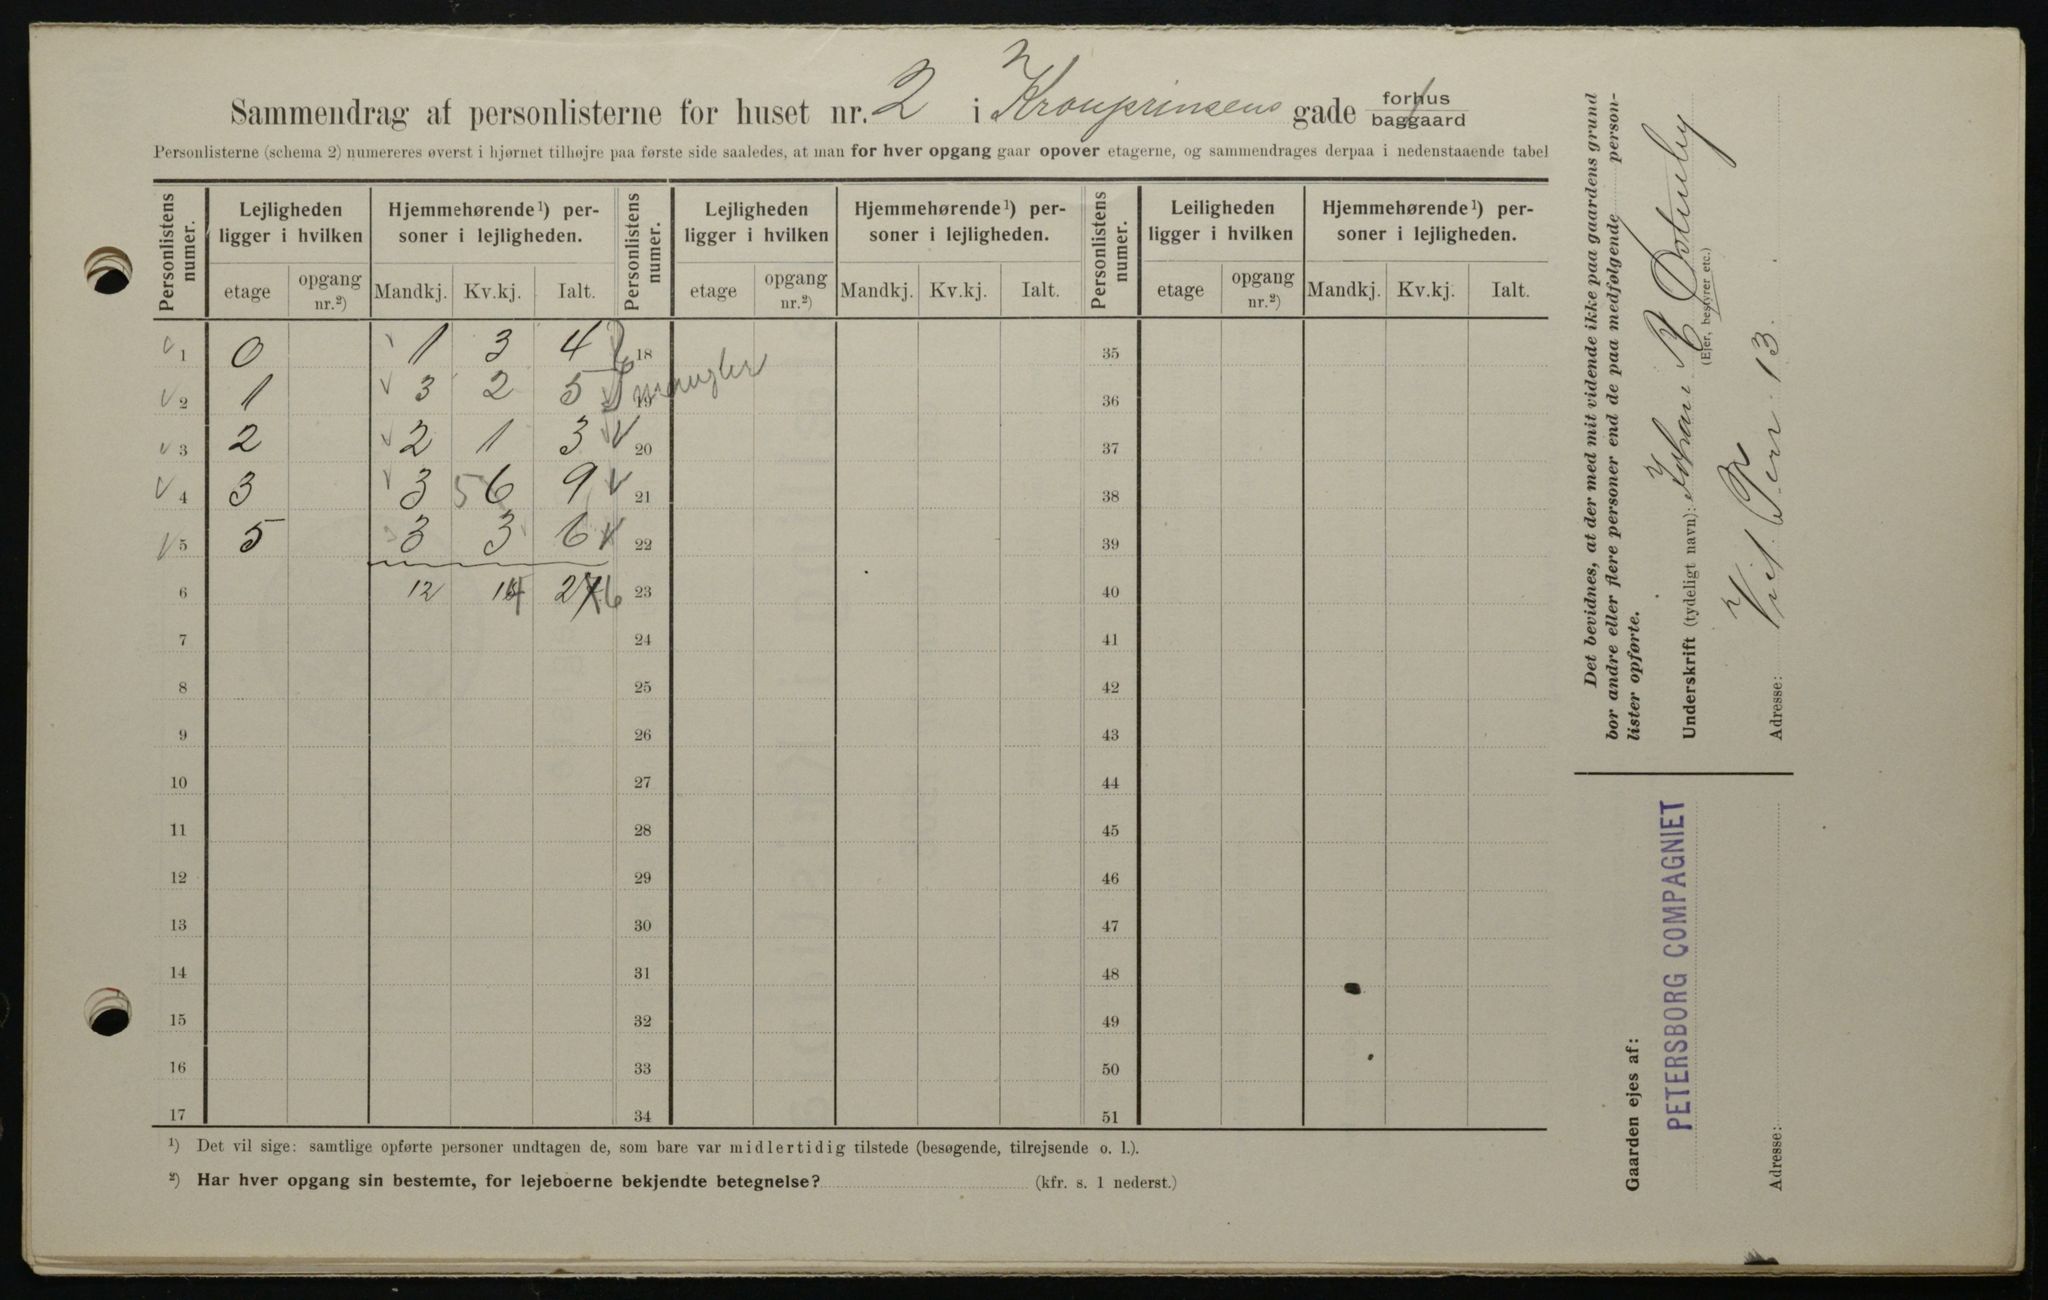 Sammendrag af personlisterne for huset nr. 2 i Kronprinsens gade forhus baggaard
Personlisterne (schema 2) numereres øverst i hjørnet tilhøjre paa første side saaledes, at man for hver opgang gaar opover etagerne, og sammendrages derpaa i nedenstaaende tabel
Personlistens numer. Lejligheden ligger i hvilken Hjemmehørende ¹) personer i lejligheden. Personlistens numer. Lejligheden ligger i hvilken Hjemmehørende ¹) personer i lejligheden. Personlistens numer. Leiligheden ligger i hvilken Hjemmehørende ¹) personer i lejligheden.
etage opgang nr.²) Mandkj. Kv.kj. Ialt. etage opgang nr.²) Mandkj. Kv.kj. Ialt. etage opgang nr.²) Mandkj. Kv.kj. Ialt.
√ 1 0 1 3 4 18 35
√ 2 1 3 2 5 mangler 19 36
√ 3 2 2 1 3 √ 20 37
√ 4 3 3 5 6 9 √ 21 38
√ 5 5 3 3 6 √ 22 39
6 12 14 27 6 23 40
7 24 41
8 25 42
9 26 43
10 27 44
11 28 45
12 29 46
13 30 47
14 31 48
15 32 49
16 33 50
17 34 51
¹) Det vil sige: samtlige opførte personer undtagen de, som bare var midlertidig tilstede (besøgende, tilrejsende o. l.).
²) Har hver opgang sin bestemte, for lejeboerne bekjendte betegnelse? (kfr. s. 1 nederst.)
Det bevidnes, at der med mit vidende ikke paa gaardens grund
bor andre eller flere personer end de paa medfølgende person-
lister opførte.
Underskrift (tydeligt navn): Johan
(Ejer, bestyrer etc.)
Adresse: 13.
Gaarden ejes af:
PETERSBORG COMPAGNIET
Adresse: